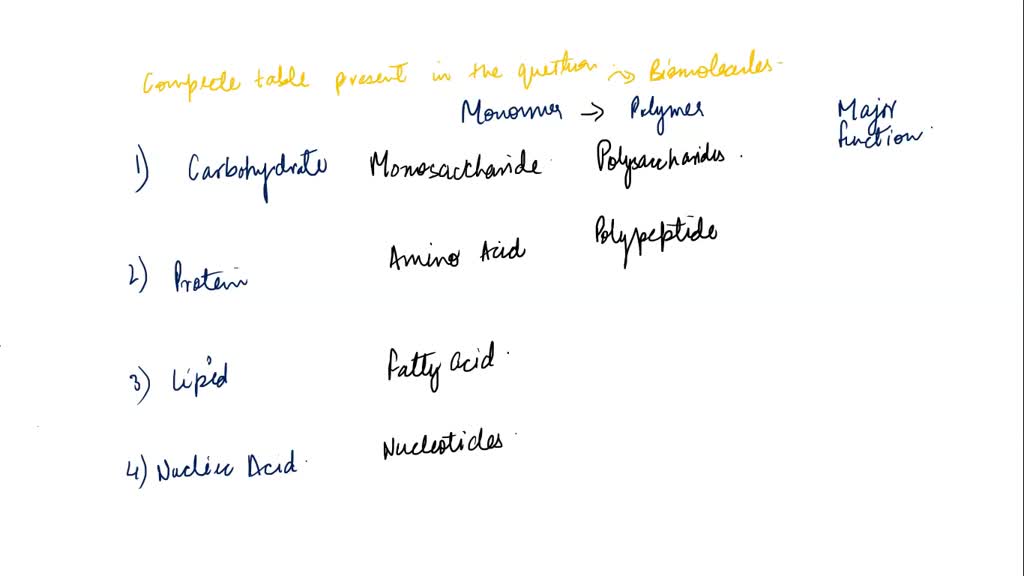 Complete table present in the question → Biomolecules-
Monomer → Polymer Major function.
1) Carbohydrate Monosaccharide Polysaccharides.
2) Protein Amino Acid Polypeptide
3) Lipid Fatty acid.
4) Nucleic Acid. Nucleotides.